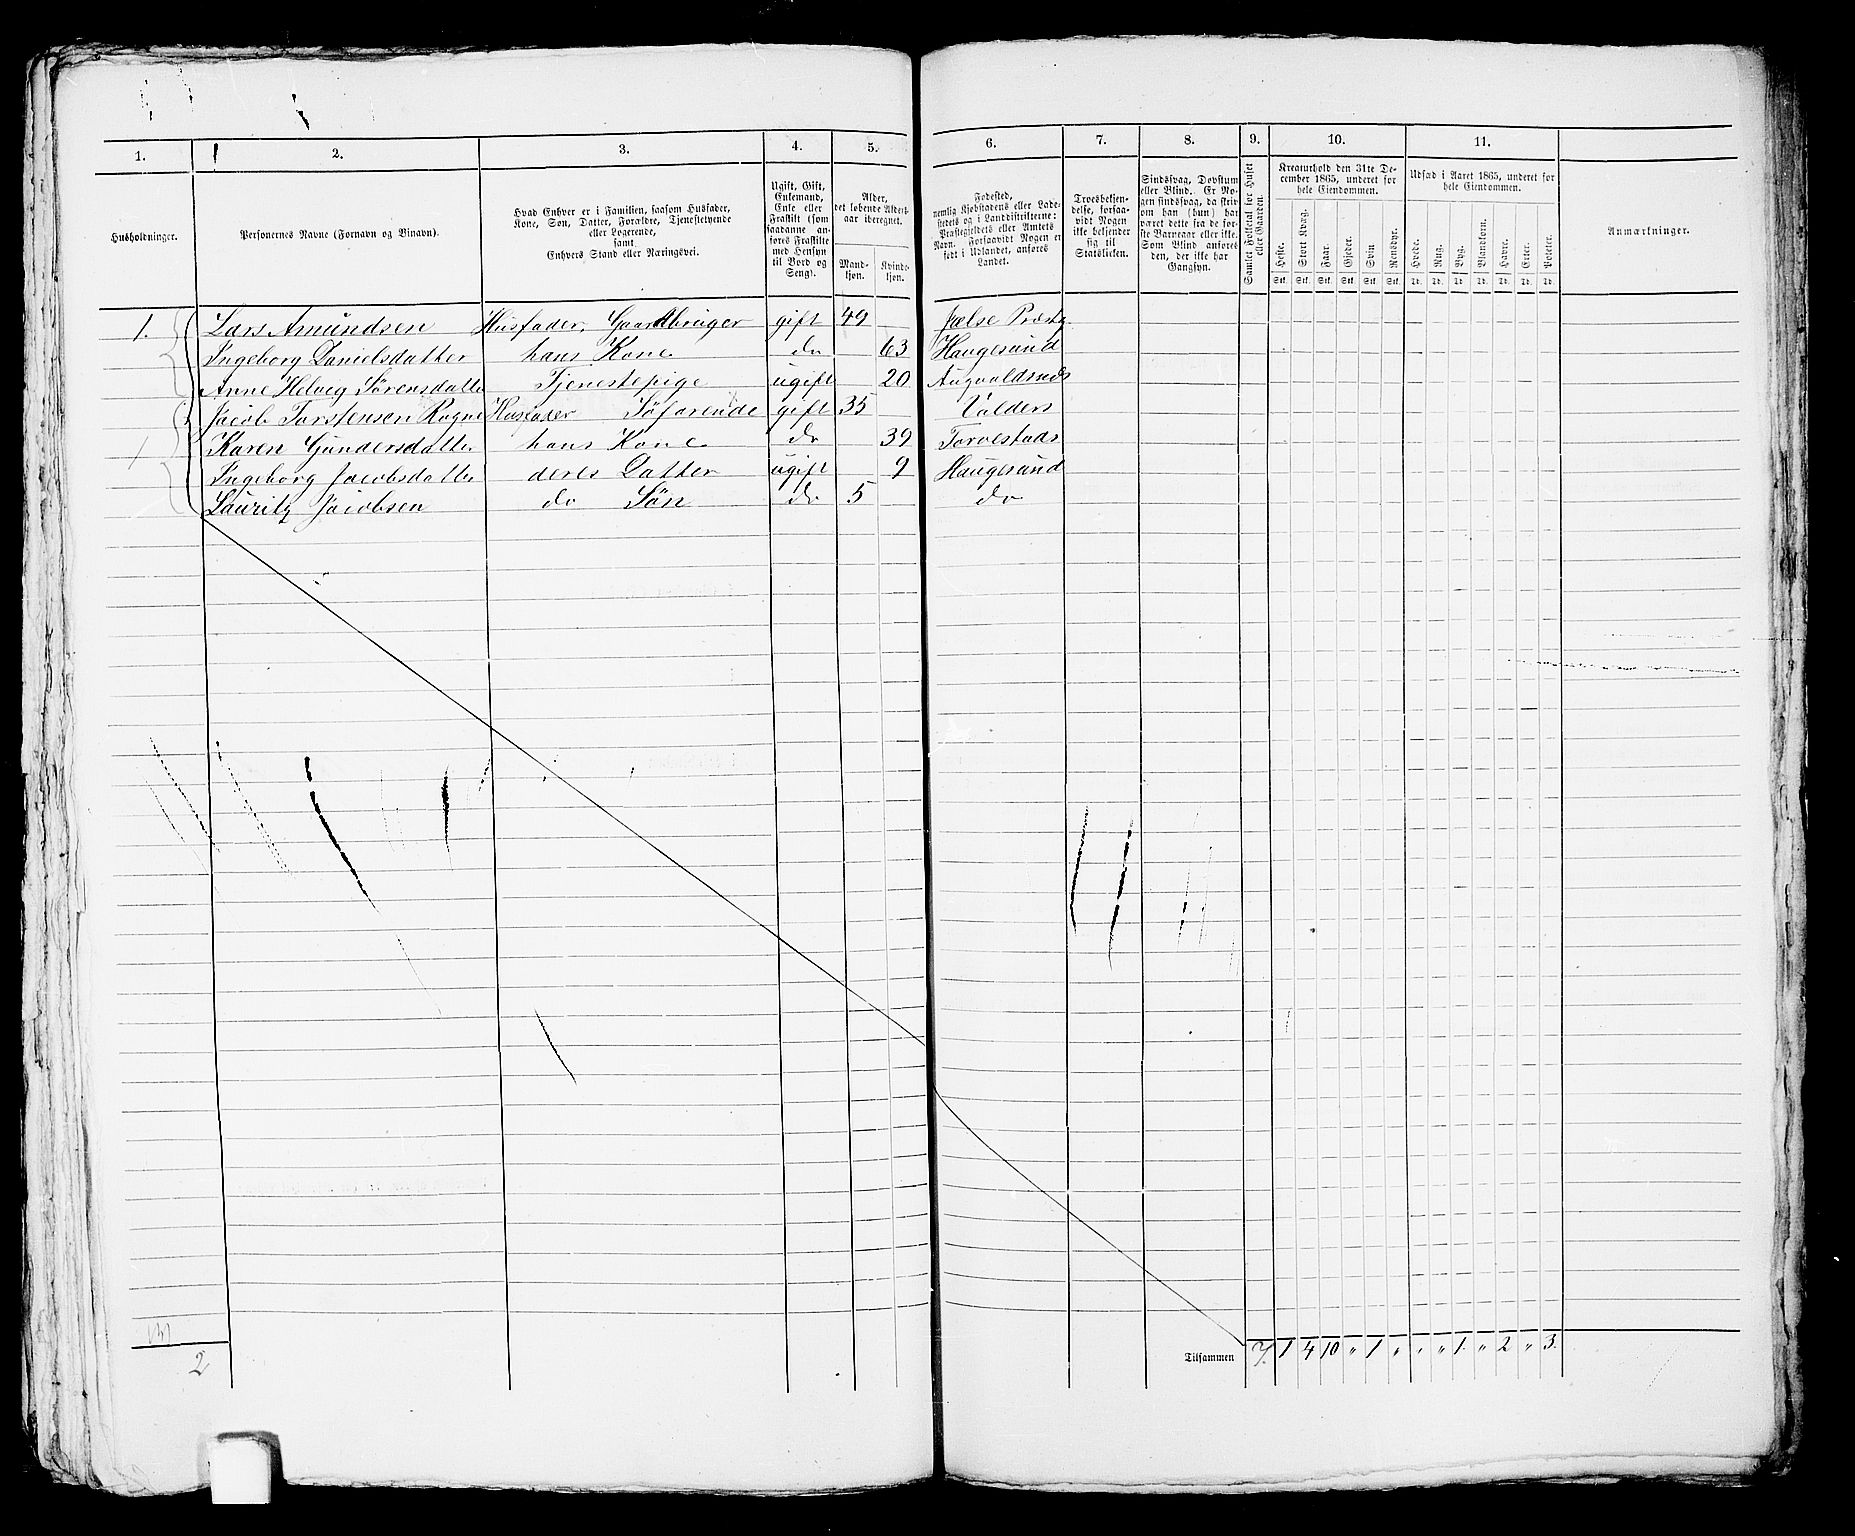 1. 2. 3. 4. 5. 6. 7. 8. 9. 10. 11.
Husholdninger.
Personernes Navne (Fornavn og Binavn).
Hvad Enhver er i Familien, saasom Husfader,
Kone, Søn, Datter, Forældre, Tjenestetyende
eller Logerende,
samt
Enhvers Stand eller Næringsvei.
Ugift, Gift,
Enkemand,
Enke eller
Fraskilt (som
saadanne an-
føres Fraskilte
med Hensyn
til Bord og
Seng).
Alder,
det løbende Alders-
aar iberegnet.
Mand-
kjøn.
Kvinde-
kjøn.
Fødested,
nemlig Kjøbstadens eller Lade-
stedets og i Landdistrikterne:
Præstegjeldets eller Amtets
Navn. Forsaavidt Nogen er
født i Udlandet, anføres
Landet.
Troesbekjen-
delse, forsaa-
vidt Nogen
ikke bekjender
sig til
Statskirken.
Sindssvag, Døvstum
eller Blind. Er No-
gen sindssvag, da skriv
om han (hun) har
været dette fra de før-
ste Barneaar eller ikke.
Som Blind anføres
den, der ikke har
Gangsyn.
Samlet Folketal for Huset
eller Gaarden.
Kreaturhold den 31te De-
cember 1865, underet for
hele Eiendommen.
Heste. Stort Kvæg. Faar. Gjeder. Svin Rensdyr.
Stk. Stk. Stk. Stk. Stk. Stk.
Udsæd i Aaret 1865, underet for
hele Eiendommen.
Hvede. Rug. Byg. Blandkorn. Havre. Erter. Poteter.
Td. Td. Td. Td. Td. Td. Td.
Anmærkninger.
1. Lars Amundsen Husfader, Gaardbruger gift 49 Jælse Præstg.
Ingeborg Danielsdatter hans Kone do 63 Haugesund
Anne Helvig Sørensdatter Tjenestepige ugift 20 Augvaldsnes
Jacob Torstensen Rogne Husfader Søfarende gift 35 Valders
1 Karen Gundersdatter hans Kone do 39 Torvestads
Ingeborg Jacobsdatter deres Datter ugift 9 Haugesund
Lauritz Jacobsen do Søn do 5 do
2
Tilsammen 7. 1 4 10 " 1 " " " 1. " 2 " 3.